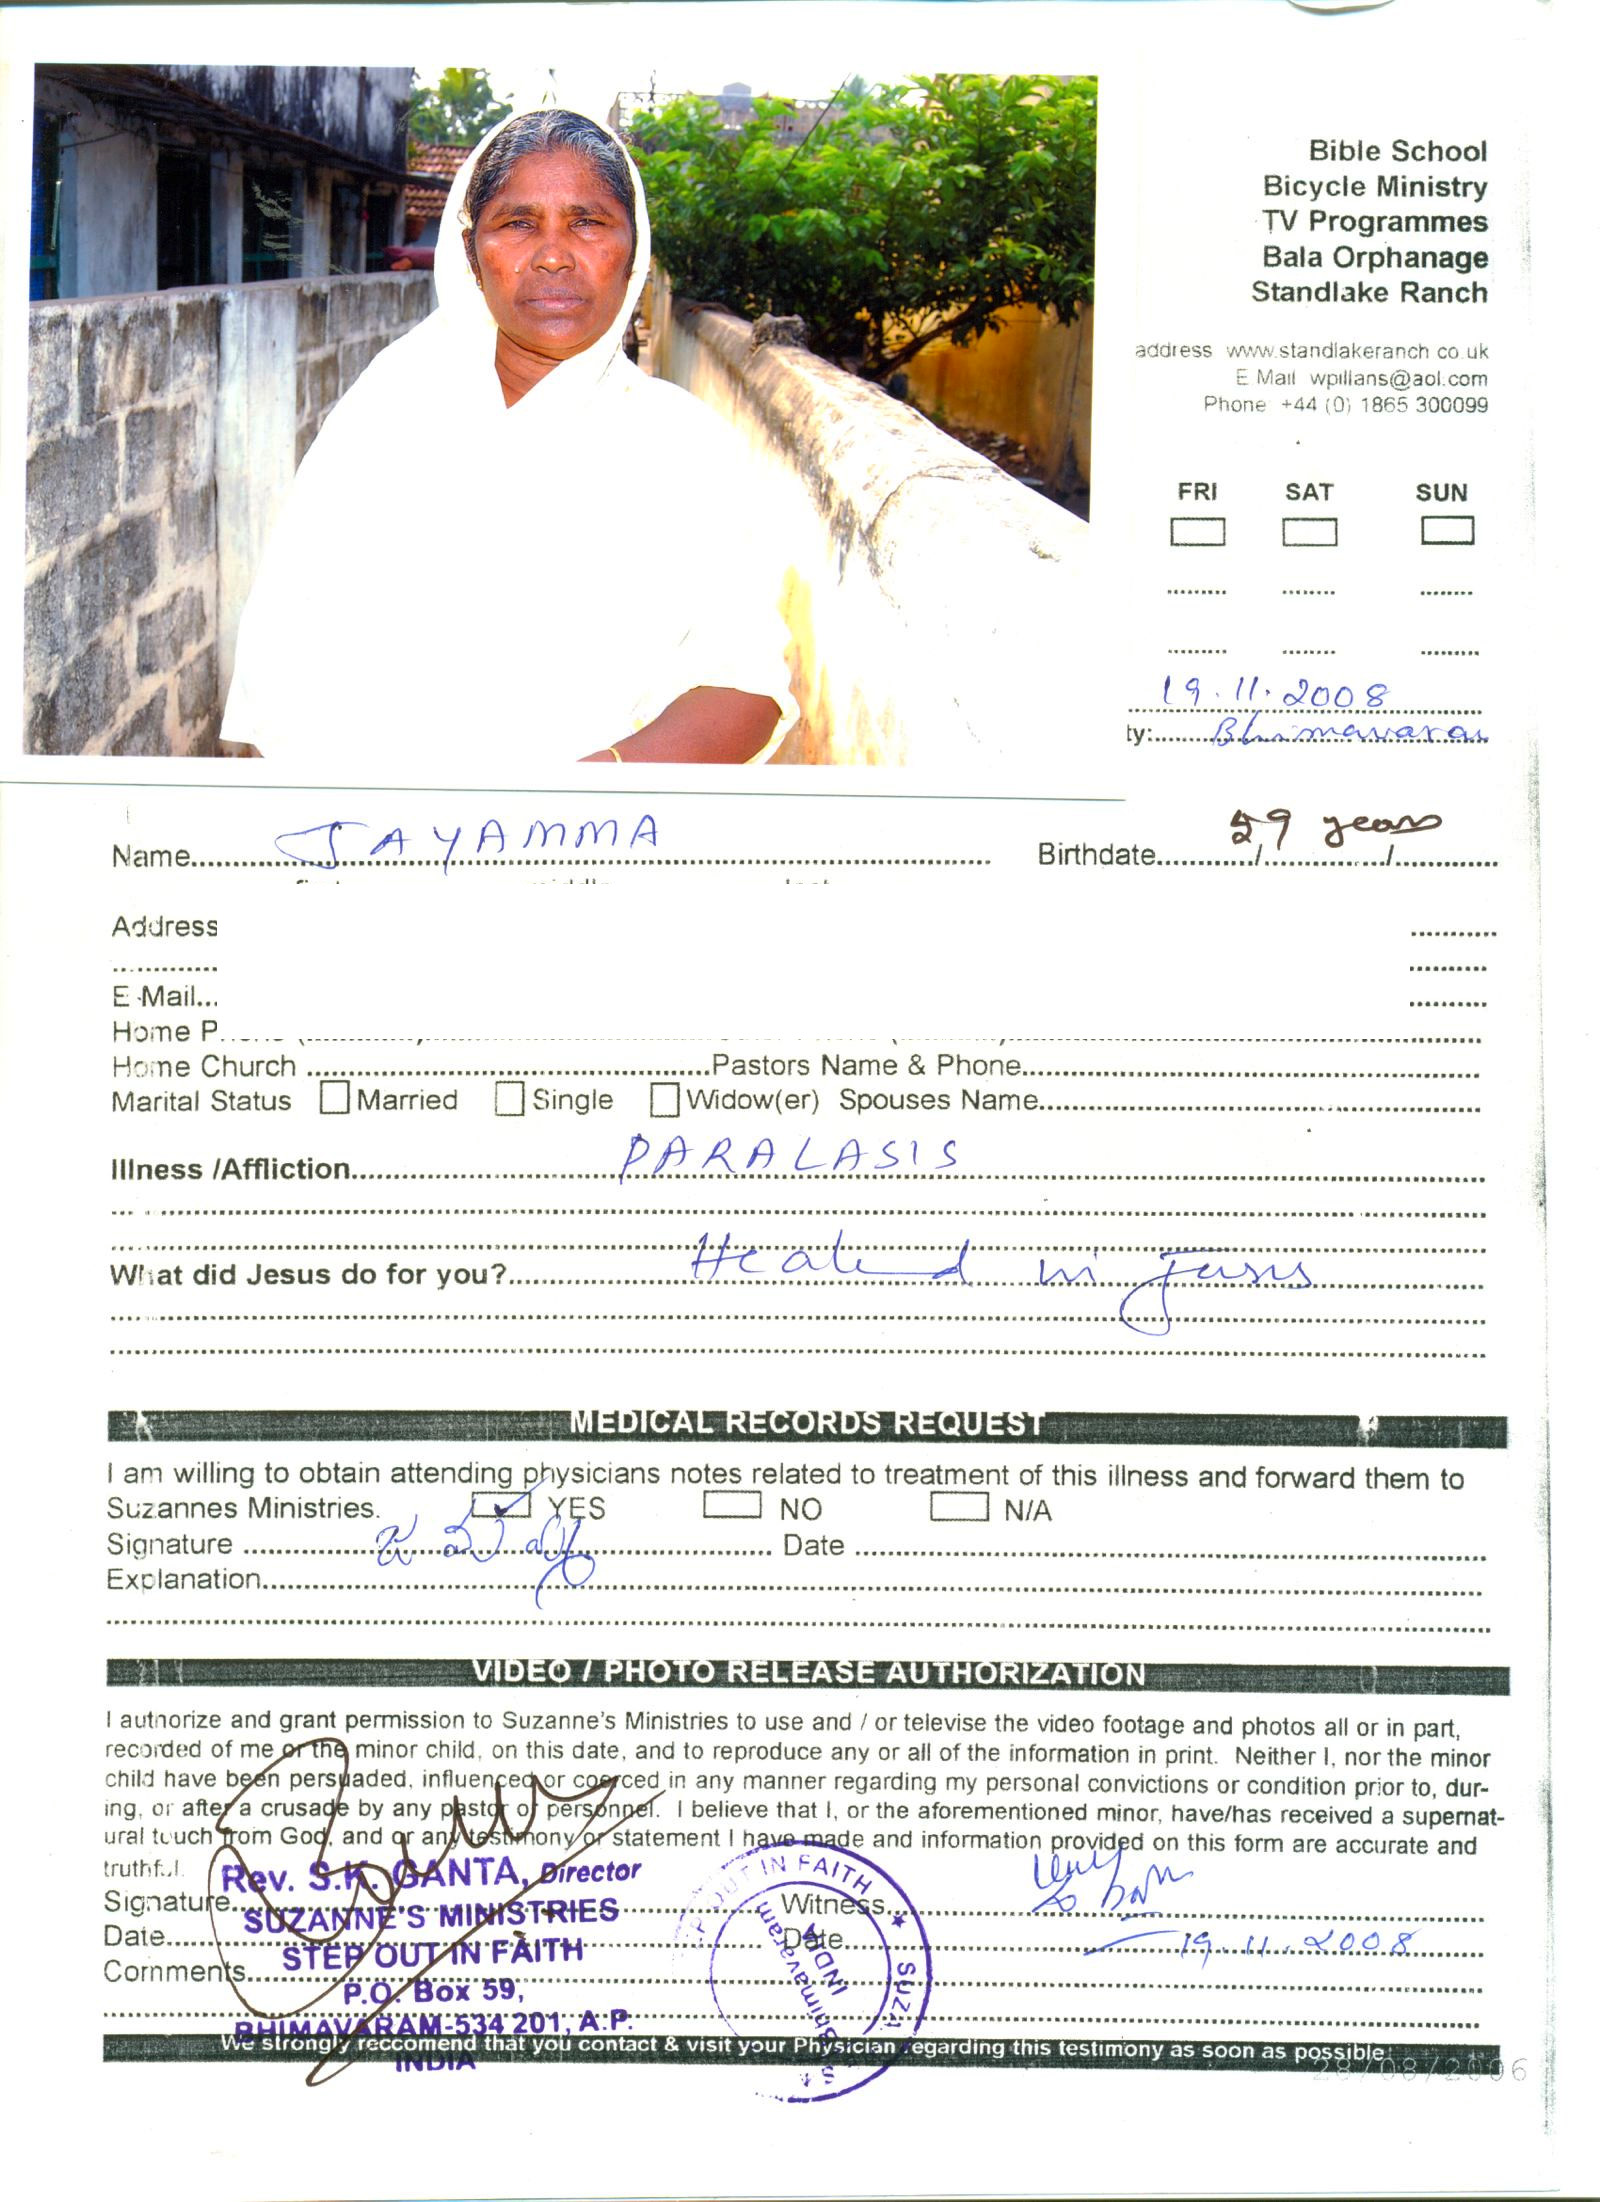 Bible School
Bicycle Ministry
TV Programmes
Bala Orphanage
Standlake Ranch
address www.standlakeranch co.uk
E Mail wpillans@aol.com
Phone +44 (0) 1865 300099
FRI SAT SUN
19.11.2008
ty: Bhimavaram
Name JAYAMMA Birthdate / / 59 years
Address
E Mail
Home P
Home Church Pastors Name & Phone
Marital Status Married Single Widow(er) Spouses Name
Illness /Affliction PARALASIS
What did Jesus do for you? Healed in Jesus
MEDICAL RECORDS REQUEST
I am willing to obtain attending physicians notes related to treatment of this illness and forward them to
Suzannes Ministries. YES NO N/A
Signature Date
Explanation
VIDEO / PHOTO RELEASE AUTHORIZATION
I authorize and grant permission to Suzanne's Ministries to use and / or televise the video footage and photos all or in part,
recorded of me or the minor child, on this date, and to reproduce any or all of the information in print. Neither I, nor the minor
child have been persuaded, influenced or coerced in any manner regarding my personal convictions or condition prior to, dur-
ing, or after a crusade by any pastor or personnel. I believe that I, or the aforementioned minor, have/has received a supernat-
ural touch from God, and or any testimony or statement I have made and information provided on this form are accurate and
truthful.
Signature Witness
Date Date 19.11.2008
Comments
Rev. S.K. GANTA, Director
SUZANNE'S MINISTRIES
STEP OUT IN FAITH
P.O. Box 59,
BHIMAVARAM-534 201, A.P.
INDIA
P OUT IN FAITH ★ SUZA
Bhimavaram
INDIA
We strongly reccomend that you contact & visit your Physician regarding this testimony as soon as possible
28/08/2006